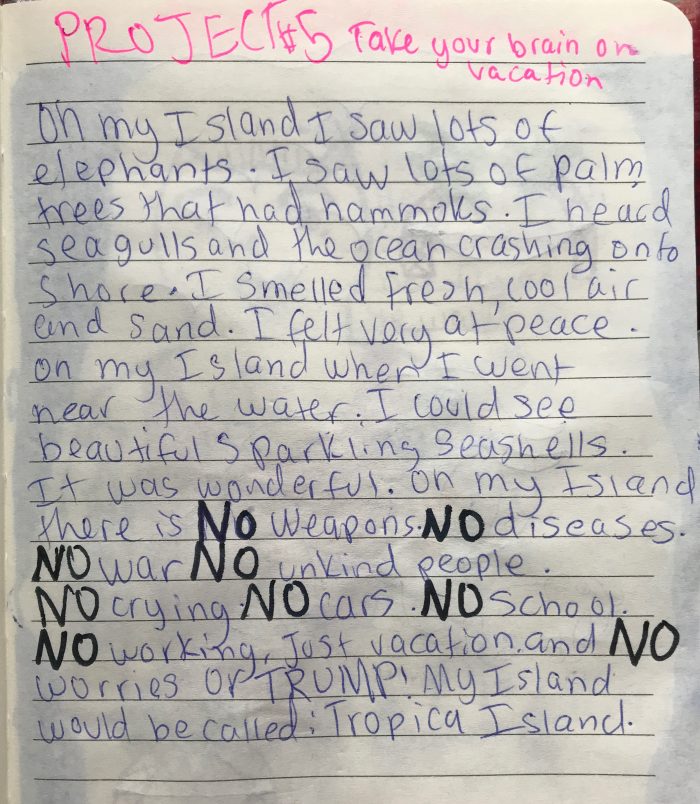 PROJECT #5 Take your brain on
vacation
On my Island I saw lots of
elephants. I saw lots of palm
trees that had hammoks. I heard
seagulls and the ocean crashing onto
shore. I smelled fresh, cool air
and sand. I felt very at peace.
on my Island when I went
near the water. I could see
beautiful sparkling seashells.
It was wonderful. On my Island
there is NO weapons. NO diseases.
NO war NO unkind people.
NO crying. NO cars. NO school.
NO working, just vacation. and NO
worries or TRUMP! My Island
would be called: Tropica Island.